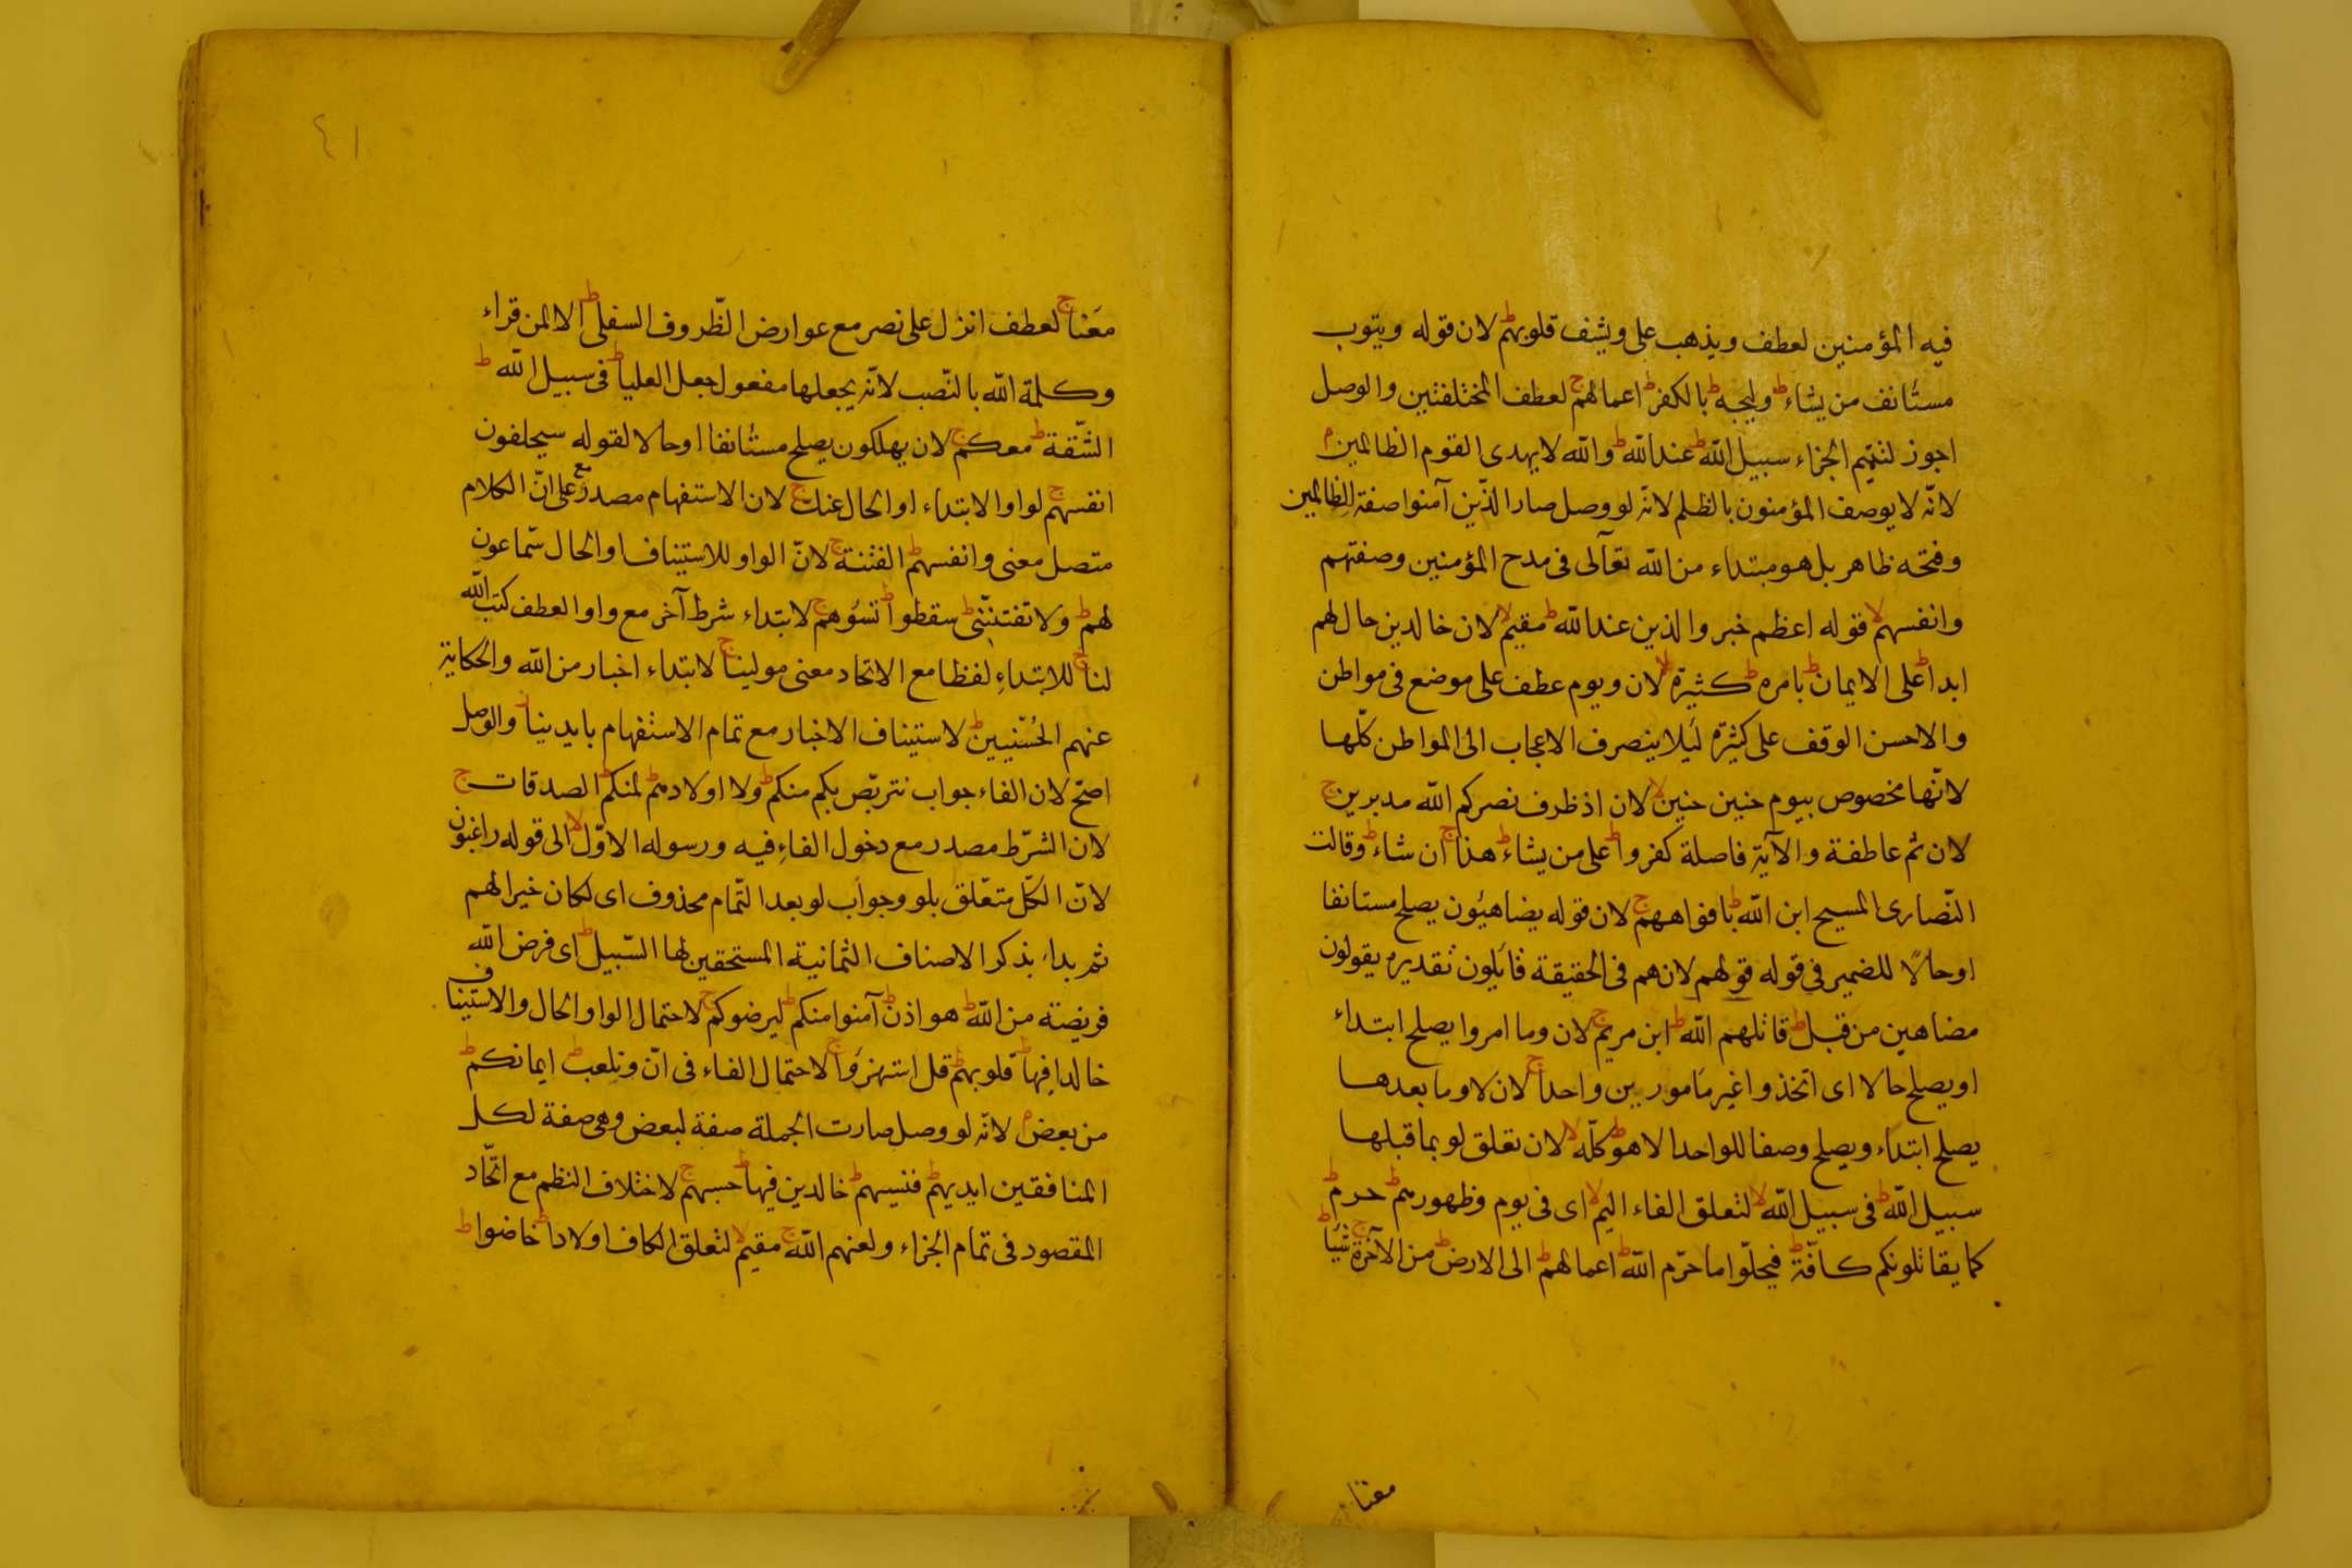 فيه المؤمنين لعطف ويذهب على ويشف قلوبهم ط لان قوله ويتوب
مستانف من يشاء ط وليجه ط بالكفر ط اعمالهم ج لعطف المختلفتين والوصل
اجوز لتتميم الجزاء سبيل الله ط عند الله ط والله لا يهدى القوم الظالمين م
لانه لا يوصف المؤمنون بالظلم لانه لو وصل صار الذين آمنوا صفة للظالمين
وفتحه ظاهر بل هو مبتداء من الله تعالى فى مدح المؤمنين وصفتهم
وانفسهم لا قوله اعظم خبر والذين عند الله ط مقيم لا لان خالدين حال لهم
ابدا ط على الايمان ط بامره ط كثيرة لا لان ويوم عطف على موضع فى مواطن
والاحسن الوقف على كثيرة ليلا ينصرف الاعجاب الى المواطن كلها
لانها مخصوص بيوم حنين حنين لا لان اذ ظرف نصركم الله مدبرين ج
لان ثم عاطفة والآية فاصلة كفروا ط على من يشاء ط هذا ج ان شاء ط وقالت
النصارى المسيح ابن الله ط بافواههم ج لان قوله يضاهيؤن يصلح مستانفا
اوحالا للضمير فى قوله قولهم لان هم فى الحقيقة قايلون تقديره يقولون
مضاهين من قبل ط قاتلهم الله ط ابن مريم ج لان وما امروا يصلح ابتداء
او يصلح حالا اى اتخذوا غير مامورين واحدا ج لان لا وما بعدها
يصلح ابتداء ويصلح وصفا للواحد الا هو ط كله لا لان تعلق لو بما قبلها
سبيل الله ط فى سبيل الله لا لتعلق الفاء اليم لا اى فى يوم وظهورهم ط حرم ط
كما يقاتلونكم كافة ط فيحلوا ما حرم الله ط اعمالهم ط الى الارض ط من الآخرة ج شيا ط
معنا
٤١
معنا ج لعطف انزل على نصر مع عوارض الظروف السفلى ط الا لمن قراء
وكلمة الله بالنصب لانه يجعلها مفعول جعل العليا ط فى سبيل الله ط
الشقة ط معكم ج لان يهلكون يصلح مستانفا اوحالا لقوله سيحلفون
انفسهم ج لواو الابتداء او الحال عنك ج لان الاستفهام مصدر مع على ان الكلام
متصل معنى وانفسهم ط الفتنة ج لان الواو للاستيناف او الحال سماعون
لهم ط ولا تفتنى ط سقطوا ط تسؤهم ج لابتداء شرط آخر مع واو العطف كتب الله
لنا ج للابتداء لفظا مع الاتحاد معنى مولينا ج لابتداء اخبار من الله والحكاية
عنهم الحسنيين ط لاستيناف الاخبار مع تمام الاستفهام بايدينا ز والوصل
اصح لان الفاء جواب نتربص بكم منكم ط ولا اولادهم ط لمنكم ط الصدقات ج
لان الشرط مصدر مع دخول الفاء فيه ورسوله الاول لا الى قوله راغبون
لان الكل متعلق بلو وجواب لو بعد التمام محذوف اى لكان خيرا لهم
ثم بداء بذكر الاصناف الثمانية المستحقين لها السبيل ط اى فرض الله
فريضة من الله ط هو اذن ط آمنوا منكم ط ليرضوكم ج لاحتمال الواو الحال والاستيناف
خالدا فيها ط قلوبهم ط قل استهزؤا ج لاحتمال الفاء فى ان ونلعب ط ايمانكم ط
من بعض م لانه لو وصل صارت الجملة صفة لبعض وهى صفة لكل
المنافقين ايديهم ط فنسيهم ط خالدين فيها ط حسبهم ج لاختلاف النظم مع اتحاد
المقصود فى تمام الجزاء ولعنهم الله ج مقيم لا لتعلق الكاف اولادا ط خاضوا ط